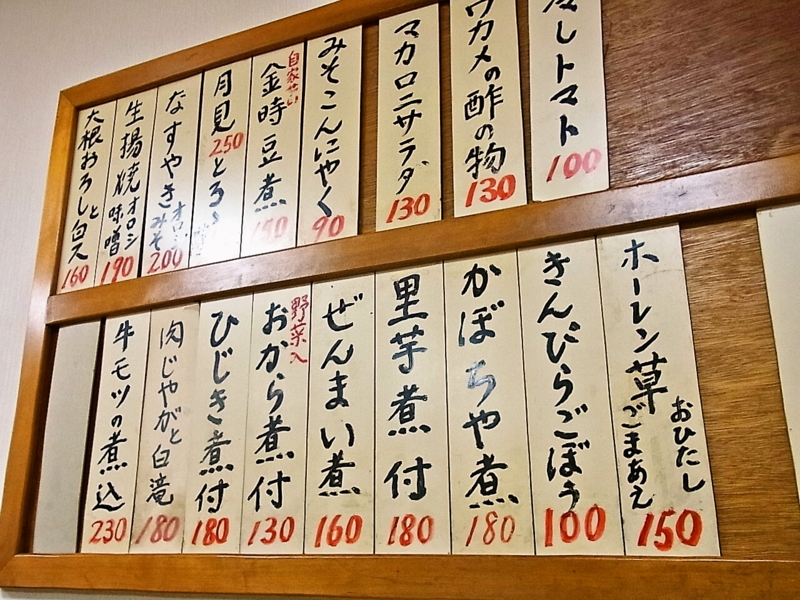 トマト
100
ワカメの酢の物
130
マカロニサラダ
130
みそこんにゃく
90
自家せい
金時豆煮
150
月見とろろ
250
なすやき
オロシ
みそ
200
生揚焼
オロシ
味噌
190
大根おろしと白ス
160
ホーレン草
おひたし
ごまあえ
150
きんぴらごぼう
100
かぼちゃ煮
180
里芋煮付
180
ぜんまい煮
160
野菜入
おから煮付
130
ひじき煮付
180
肉じゃがと白滝
180
牛モツの煮込
230